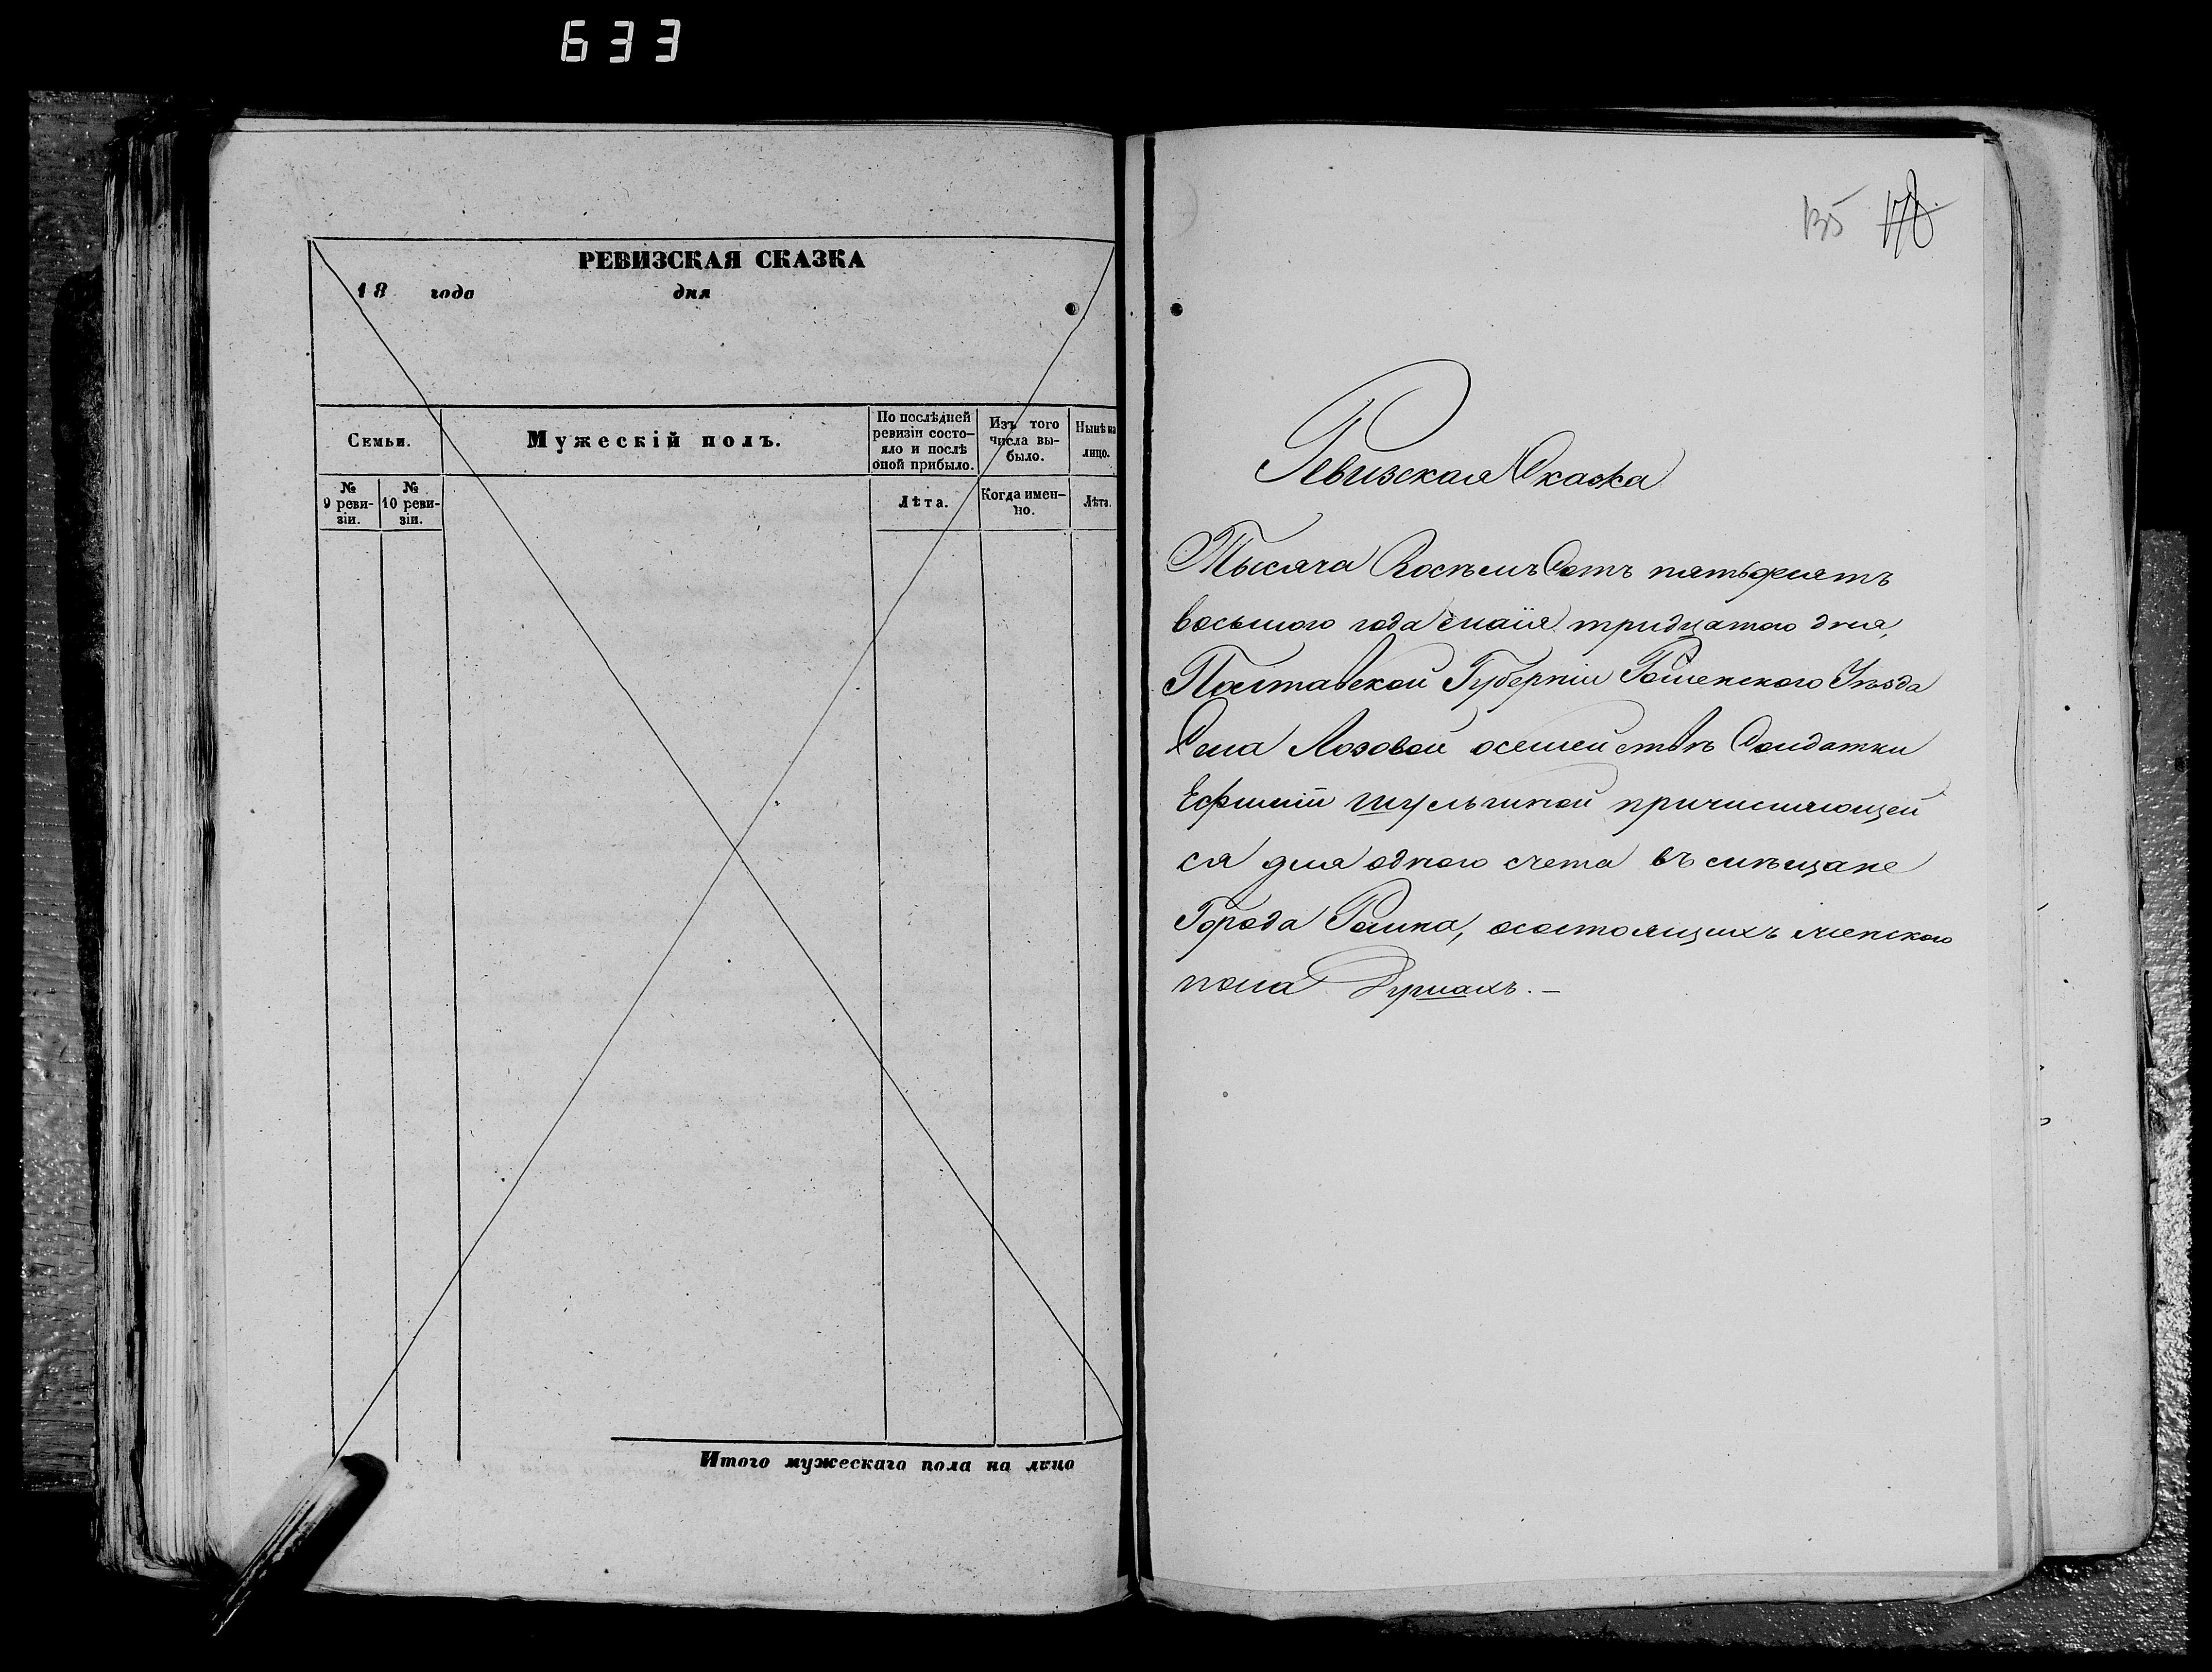 633
РЕВИЗСКАЯ СКАЗКА
18 года дня
Семьи.
Мужескій полъ.
По послѣдней ревизіи состояло и послѣ оной прибыло.
Изъ того числа выбыло.
Нынѣ на лицо.
№ 9 ревизіи.
№ 10 ревизіи.
Лѣта.
Когда именно.
Лѣта.
Итого мужескаго пола на лицо
135 178
Ревизская Сказка
Тысяча Восѣмъ Сотъ пятьдесятъ
восьмого года маія тридцатого дня,
Полтавской Губерніи Роменского Уѣзда
Села Лозовой осемействѣ Солдатки
Ефиміи Шульгиной причисляющей
ся для одного счета въ мѣщане
Города Ромна, осостоящихъ женского
пола Душахъ. —